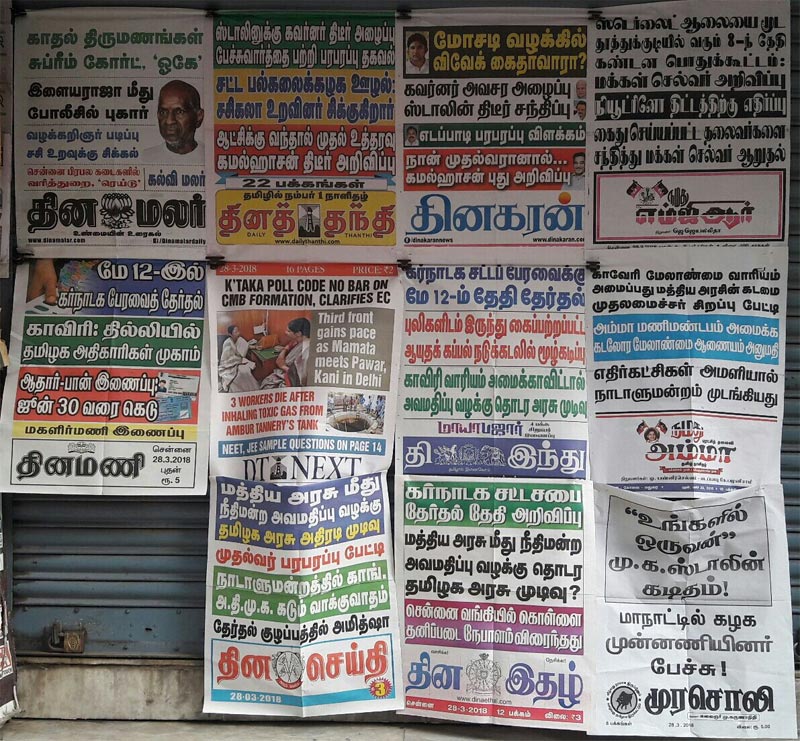 காதல் திருமணங்கள்
சுப்ரீம் கோர்ட், 'ஓகே'
இளையராஜா மீது
போலீசில் புகார்
வழக்கறிஞர் படிப்பு
சசி உறவுக்கு சிக்கல்
சென்னை பிரபல கடைகளில்
வரித்துறை, 'ரெய்டு'
கல்வி மலர்
தின மலர்
உண்மையின் உரைகல்
www.dinamalar.com
/Dinamalardaily
ஸ்டாலினுக்கு கவர்னர் திடீர் அழைப்பு
பேச்சுவார்த்தை பற்றி பரபரப்பு தகவல்
சட்ட பல்கலைக்கழக ஊழல்:
சசிகலா உறவினர் சிக்குகிறார்
ஆட்சிக்கு வந்தால் முதல் உத்தரவு
கமல்ஹாசன் திடீர் அறிவிப்பு
22 பக்கங்கள்
தமிழில் நம்பர் 1 நாளிதழ்
தினத் தந்தி
DAILY THANTHI
www.dailythanthi.com
மோசடி வழக்கில்
விவேக் கைதாவாரா?
கவர்னர் அவசர அழைப்பு
ஸ்டாலின் திடீர் சந்திப்பு
எடப்பாடி பரபரப்பு விளக்கம்
நான் முதல்வரானால்...
கமல்ஹாசன் புது அறிவிப்பு
தினகரன்
dinakarannews
www.dinakaran.com
ஸ்டெர்லைட் ஆலையை மூட
தூத்துக்குடியில் வரும் 8-ந் தேதி
கண்டன பொதுக்கூட்டம்:
மக்கள் செல்வர் அறிவிப்பு
நியூட்ரினோ திட்டத்திற்கு எதிர்ப்பு
கைது செய்யப்பட்ட தலைவர்களை
சந்தித்து மக்கள் செல்வர் ஆறுதல்
எம்ஜிஆர்
மே 12-இல்
கர்நாடக பேரவைத் தேர்தல்
காவிரி: தில்லியில்
தமிழக அதிகாரிகள் முகாம்
ஆதார்-பான் இணைப்பு:
ஜூன் 30 வரை கெடு
மகளிர்மணி இணைப்பு
தினமணி
சென்னை
28.3.2018
புதன்
ரூ. 5
28-3-2018 16 PAGES PRICE: ₹2
K'TAKA POLL CODE NO BAR ON
CMB FORMATION, CLARIFIES EC
Third front
gains pace
as Mamata
meets Pawar,
Kani in Delhi
3 WORKERS DIE AFTER
INHALING TOXIC GAS FROM
AMBUR TANNERY'S TANK
NEET, JEE SAMPLE QUESTIONS ON PAGE 14
DT NEXT
கர்நாடக சட்டப் பேரவைக்கு
மே 12-ம் தேதி தேர்தல்
புலிகளிடம் இருந்து கைப்பற்றப்பட்ட
ஆயுதக் கப்பல் நடுக்கடலில் மூழ்கடிப்பு
காவிரி வாரியம் அமைக்காவிட்டால்
அவமதிப்பு வழக்கு தொடர அரசு முடிவு
மாயாபஜார்
தி இந்து
காவேரி மேலாண்மை வாரியம்
அமைப்பது மத்திய அரசின் கடமை
முதலமைச்சர் சிறப்பு பேட்டி
அம்மா மணிமண்டபம் அமைக்க
கடலோர மேலாண்மை ஆணையம் அனுமதி
எதிர்கட்சிகள் அமளியால்
நாடாளுமன்றம் முடங்கியது
நமது
அம்மா
மத்திய அரசு மீது
நீதிமன்ற அவமதிப்பு வழக்கு
தமிழக அரசு அதிரடி முடிவு
முதல்வர் பரபரப்பு பேட்டி
நாடாளுமன்றத்தில் காங்.
அ.தி.மு.க. கடும் வாக்குவாதம்
தேர்தல் குழப்பத்தில் அமித்ஷா
தின செய்தி
28-03-2018
3
கர்நாடக சட்டசபை
தேர்தல் தேதி அறிவிப்பு
மத்திய அரசு மீது நீதிமன்ற
அவமதிப்பு வழக்கு தொடர
தமிழக அரசு முடிவு?
சென்னை வங்கியில் கொள்ளை
தனிப்படை நேபாளம் விரைந்தது
தின இதழ்
www.dinaethal.com
சென்னை 28-3-2018 12 பக்கம் விலை: ₹3
"உங்களில்
ஒருவன்"
மு.க.ஸ்டாலின்
கடிதம்!
மாநாட்டில் கழக
முன்னணியினர்
பேச்சு!
முரசொலி
8 பக்கங்கள் 28.3.2018 விலை: ரூ. 5.00